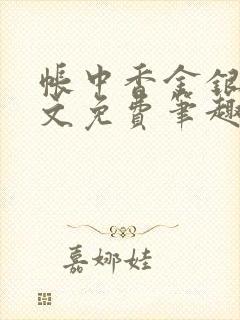 帐中香金银
文免费笔趣
嘉娜娃